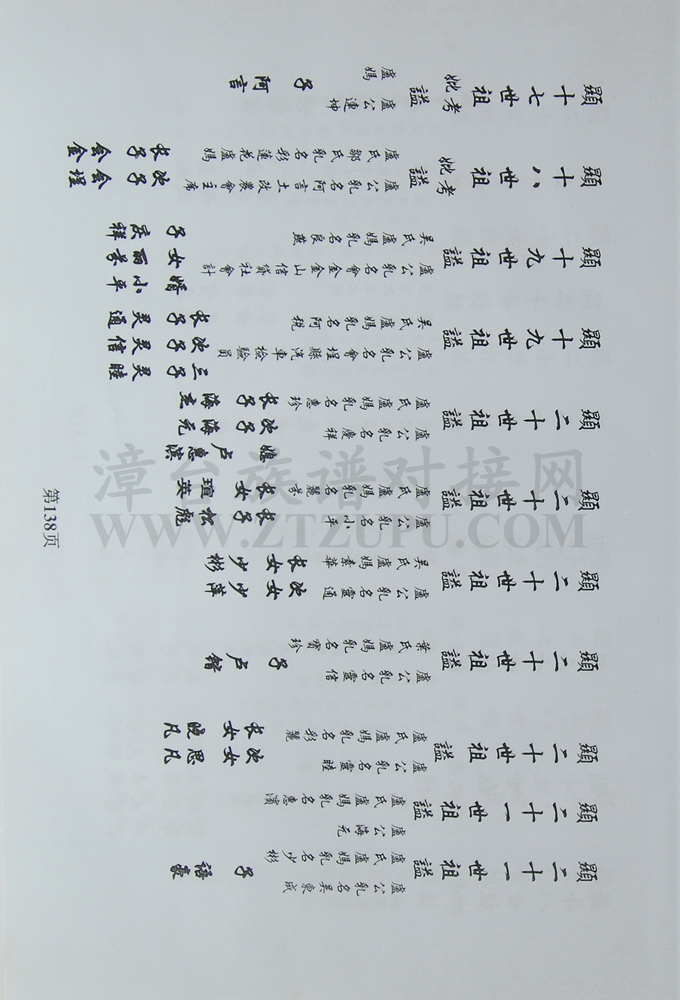 顯十七世祖考妣諡
盧公連坤
盧媽
子 阿言
顯十八世祖考妣諡
盧公乳名阿言土改農會主席
盧氏鄒氏乳名彩蓮花盧媽
长子 会金
次子 会埕
顯十九世祖諡
盧公乳名會金金山信貸社會計
吳氏盧媽乳名良燕
子 庆祥
女 丽芬
婿 小平
顯十九世祖諡
盧公乳名會埕縣汽車檢驗員
吳氏盧媽乳名阿税
长子 灵通
次子 灵信
三子 灵睦
顯二十世祖諡
盧公乳名慶祥
盧氏盧媽乳名惠珍
长子 海立
次子 海元
媳 卢惠滨
顯二十世祖諡
盧公乳名小平
盧氏盧媽乳名麗芬
长女 瑄英
长子 松彪
顯二十世祖諡
盧公乳名靈通
吳氏盧媽素華
长女 少彬
次女 少萍
顯二十世祖諡
盧公乳名靈信
葉氏盧媽乳名寶珍
子 卢锴
顯二十世祖諡
盧公乳名靈睦
盧氏盧媽乳名彩麗
长女 晓凡
次女 思凡
顯二十一世祖諡
盧公海元
盧氏盧媽乳名惠濱
顯二十一世祖諡
盧公乳名吳東成
盧氏盧媽乳名少彬
子 语豪
第138页
漳台族谱对接网
WWW.ZTZUPU.COM